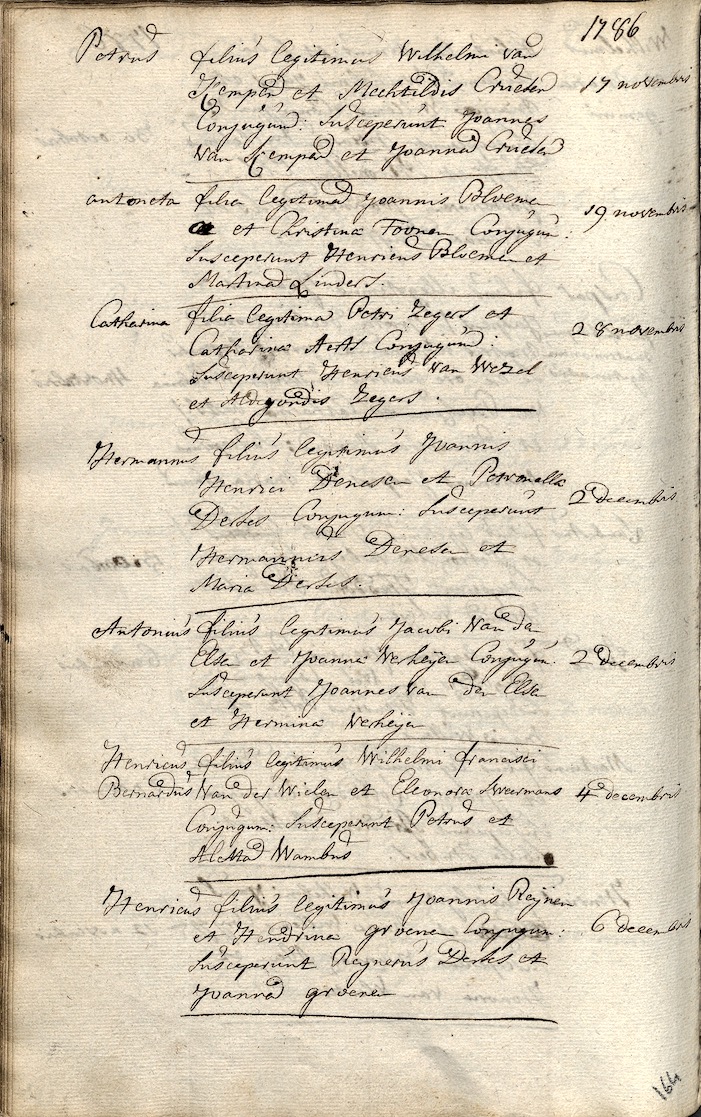 1786
Petrus filius legitimus Wilhelmi van
Kempen et Mechtildis Crueden 17 novembris
Conjugum: Susceperunt Joannes
van Kempen et Joanna Crueden
antoneta filia legitima Joannis Bloeme
et Christina Toonen Conjugum: 19 novembris
Susceperunt Henricus Bloemen et
Martina Linders.
Catharina filia legitima Petri Zegers et
Catharina Aerts Conjugum: 28 novembris
Susceperunt Henricus van Wezel
et Aldegondis Zegers.
Hermannus filius legitimus Joannis
Henrici Denesen et Petronella
Derks Conjugum: Susceperunt 2 decembris
Hermannus Denesen et
Maria Derks.
Antonius filius legitimus Jacobi van den
Elsen et Joanna Verheijen Conjugum: 2 decembris
Susceperunt Joannes van den Elsen
et Hermina Verheijen
Henricus filius legitimus Wilhelmi francisci
Bernardus van der Wielen et Eleonora Sweermans 4 decembris
Conjugum: Susceperunt Petrus et
Aletta Wambus
Henricus filius legitimus Joannis Reijnen
et Hendrina groenen Conjugum: 6 decembris
Susceperunt Reijnerus Derks et
Joanna groenen
164